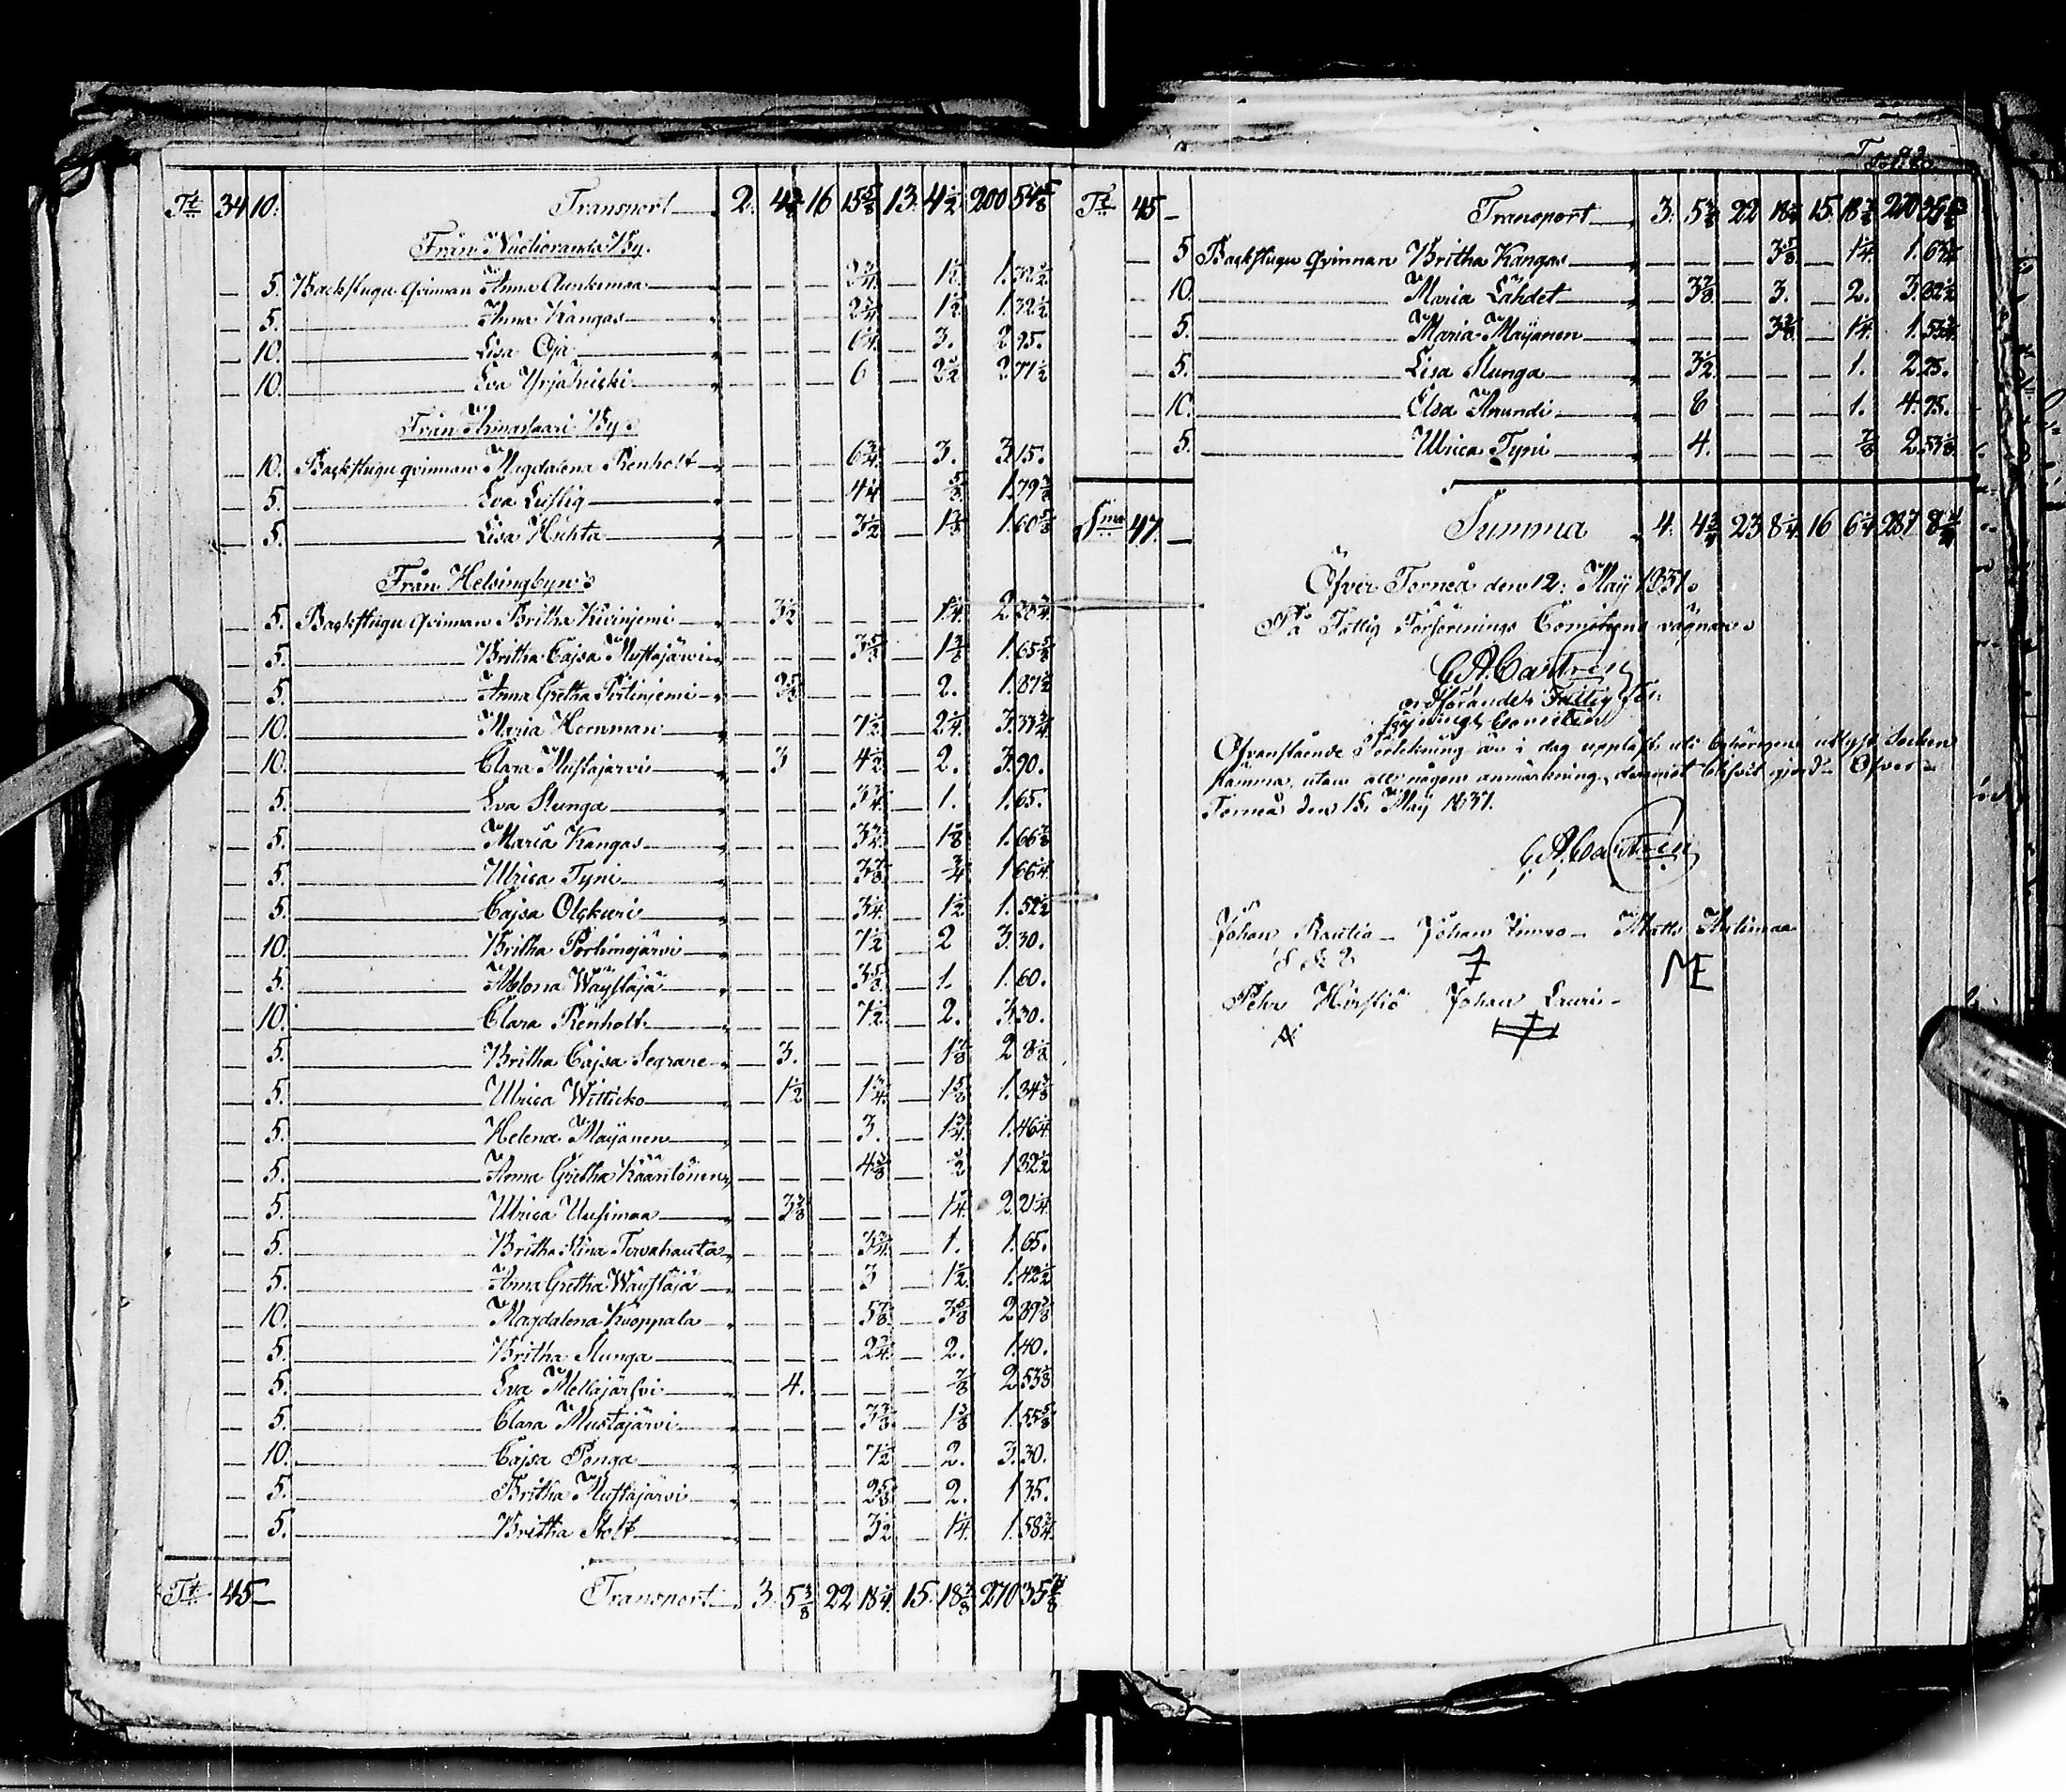 Tt 34 10. Transport 2. 4 16 15 5/8 13. 4 1/2 200 54 5/8
Från Nuotioranda By.
— 5. Backstugu qvinnan Anna Aunkimaa — — — 2 3/4 — 1 1/2. 1. 32 1/2
— 5. Anna Kangas — — — 2 3/4 — 1 1/2 1. 32 1/2
— 10. Lisa Oja — — — 6 1/4. — 3. 2. 95.
— 10. Eva Yrjäheicki — — — 6 — 2 1/2 2. 71 1/2
Från Armassaari By.
— 10. Backstugu qvinnan Magdalena Renholt — — — 6 3/4 — 3. 3. 15.
— 5. Eva Lustig — — — 4 1/4 — 5/8. 1. 79 3/8
— 5. Lisa Huhta — — — 3 1/2 — 1 5/8 1. 60 5/8
Från Helsingbyn
— 5. Backstugu qvinnan Britha Kiviniemi — 3 1/2 — — — 1 1/4. 2.
— 5. Britha Cajsa Mustajärvi — — — 3 5/8 — 1 3/8 1. 65 5/8
— 5. Anna Gretha Portinjemi — — — — 2. 1. 87 1/2
— 10. Maria Hornman — — — 7 1/2. — 2 1/4. 3. 33 3/4
— 10. Clara Mustajärvi — 3 — 4 1/2 — 2. 3. 90.
— 5. Eva Slunga — — — 3 3/4. — 1. 1. 65.
— 5. Maria Kangas — — — 3 3/4. — 1 1/8 1. 66 7/8
— 5. Ulrica Tyni — — — 3 7/8. — 3/4 1. 66 1/4
— 5. Cajsa Olckuri — — — 3 1/4. — 1 1/2 1. 52 1/2
— 10. Britha Portimojärvi — — — 7 1/2 — 2 3. 30.
— 5. Wäystäjä — — — 3 5/8. — 1. 1. 60.
— 10. Clara Renholt — — — 7 1/2. — 2. 3. 30.
— 5. Britha Cajsa Segrare — 3. — — — 1 7/8 2.
— 5. Ulrica Witticko — 1 1/2 — 1 3/4. — 1 5/8 1. 34 3/8
— 5. Helena Maijanen — — — 3. — 1 3/4. 1. 46 1/4
— 5. Anna Gretha — — — 4 3/8 — 1/2 1. 32 1/2
— 5. Ulrica Uusimaa — 3 3/8 — — — 1 3/4. 2. 21 1/4
— 5. Britha Stina Tervahauta — — — 3 3/4. — 1. 1. 65.
— 5. Anna Gretha Wäystäjä — — — 3 — 1 1/2. 1. 42 1/2
— 10. Magdalena Kuoppala — — — 5 7/8. — 3 5/8 2. 89 3/8
— 5. Britha Slunga — — — 2 3/4. — 2. 1. 40.
— 5. Eva Mellajärfvi — 4. — — — 7/8 2. 53 1/8
— 5. Clara Mustajärvi — — — 3 3/8. — 1 3/8 1. 55 5/8
— 10. Cajsa Ponga — — — 7 1/2 — 2. 3. 30.
— 5. Britha Mustajärvi — — — 2 5/8. — 2. 1. 35.
— 5. Britha Stolt — — — 3 1/2 — 1 1/4. 1. 58 3/4.
Tt 45 — Transport 3. 5 3/8 22 18 1/4. 15. 18 3/8 270 35 7/8
Tt 45 — Transport 3. 5 3/8 22 18 1/4 15. 18 3/8 270 35 7/8
— 5 Backstugu qvinnan Britha Kangas — — — 3 5/8. — 1 1/4. 1.
— 10. Maria Lahdet — 3 7/8. — 3. — 2. 3. 82 1/2
— 5. Maria Maijanen — — — 3 3/8. — 1 1/4. 1. 53 3/4
— 5. Lisa Slunga — 3 1/2. — — — 1. 2. 25.
— 10. Elsa Arundi — 8 — — — 1. 4. 95.
— 5. Ulrica Tyni — 4. — — — 7/8 2. 53 1/8
Sma 47. — Summa 4. 4 3/4 23 8 1/4 16 6 1/4 287 8 3/4
Öfver Torneå den 12. Maij 1837.
På Fattig Försörjnings Comiteens vägnar
C A Castren
ordförande i Fattig För-
sörjnings Comiteen
Ofvanstående Förtekning är i dag uppläst uti behörigen utlyst Socken
stämma, utan att någon anmärkning deremot blifvit gjord. Öfver
Torneå den 15. Maij 1837.
C A Castren
Johan Rautio — Johan — Matts
Pehr Johan Lauri